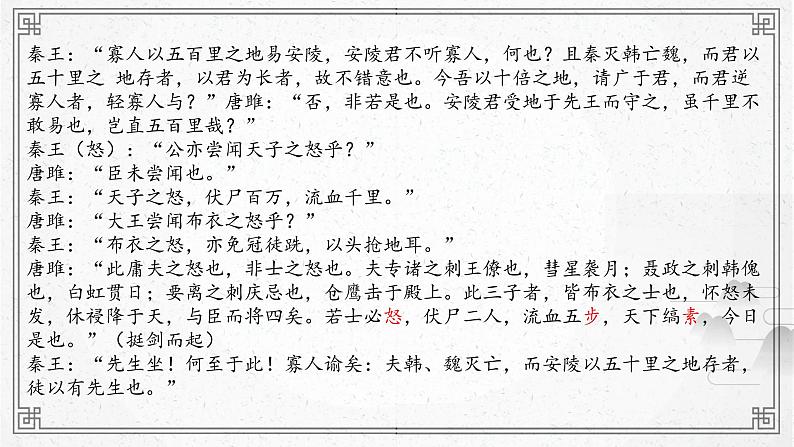 秦王：“寡人以五百里之地易安陵，安陵君不听寡人，何也？且秦灭韩亡魏，而君以
五十里之 地存者，以君为长者，故不错意也。今吾以十倍之地，请广于君，而君逆
寡人者，轻寡人与？”唐雎：“否，非若是也。安陵君受地于先王而守之，虽千里不
敢易也，岂直五百里哉？”
秦王（怒）：“公亦尝闻天子之怒乎？”
唐雎：“臣未尝闻也。”
秦王：“天子之怒，伏尸百万，流血千里。”
唐雎：“大王尝闻布衣之怒乎？”
秦王：“布衣之怒，亦免冠徒跣，以头抢地耳。”
唐雎：“此庸夫之怒也，非士之怒也。夫专诸之刺王僚也，彗星袭月；聂政之刺韩傀
也，白虹贯日；要离之刺庆忌也，仓鹰击于殿上。此三子者，皆布衣之士也，怀怒未
发，休祲降于天，与臣而将四矣。若士必怒，伏尸二人，流血五步，天下缟素，今日
是也。”（挺剑而起）
秦王：“先生坐！何至于此！寡人谕矣：夫韩、魏灭亡，而安陵以五十里之地存者，
徒以有先生也。”